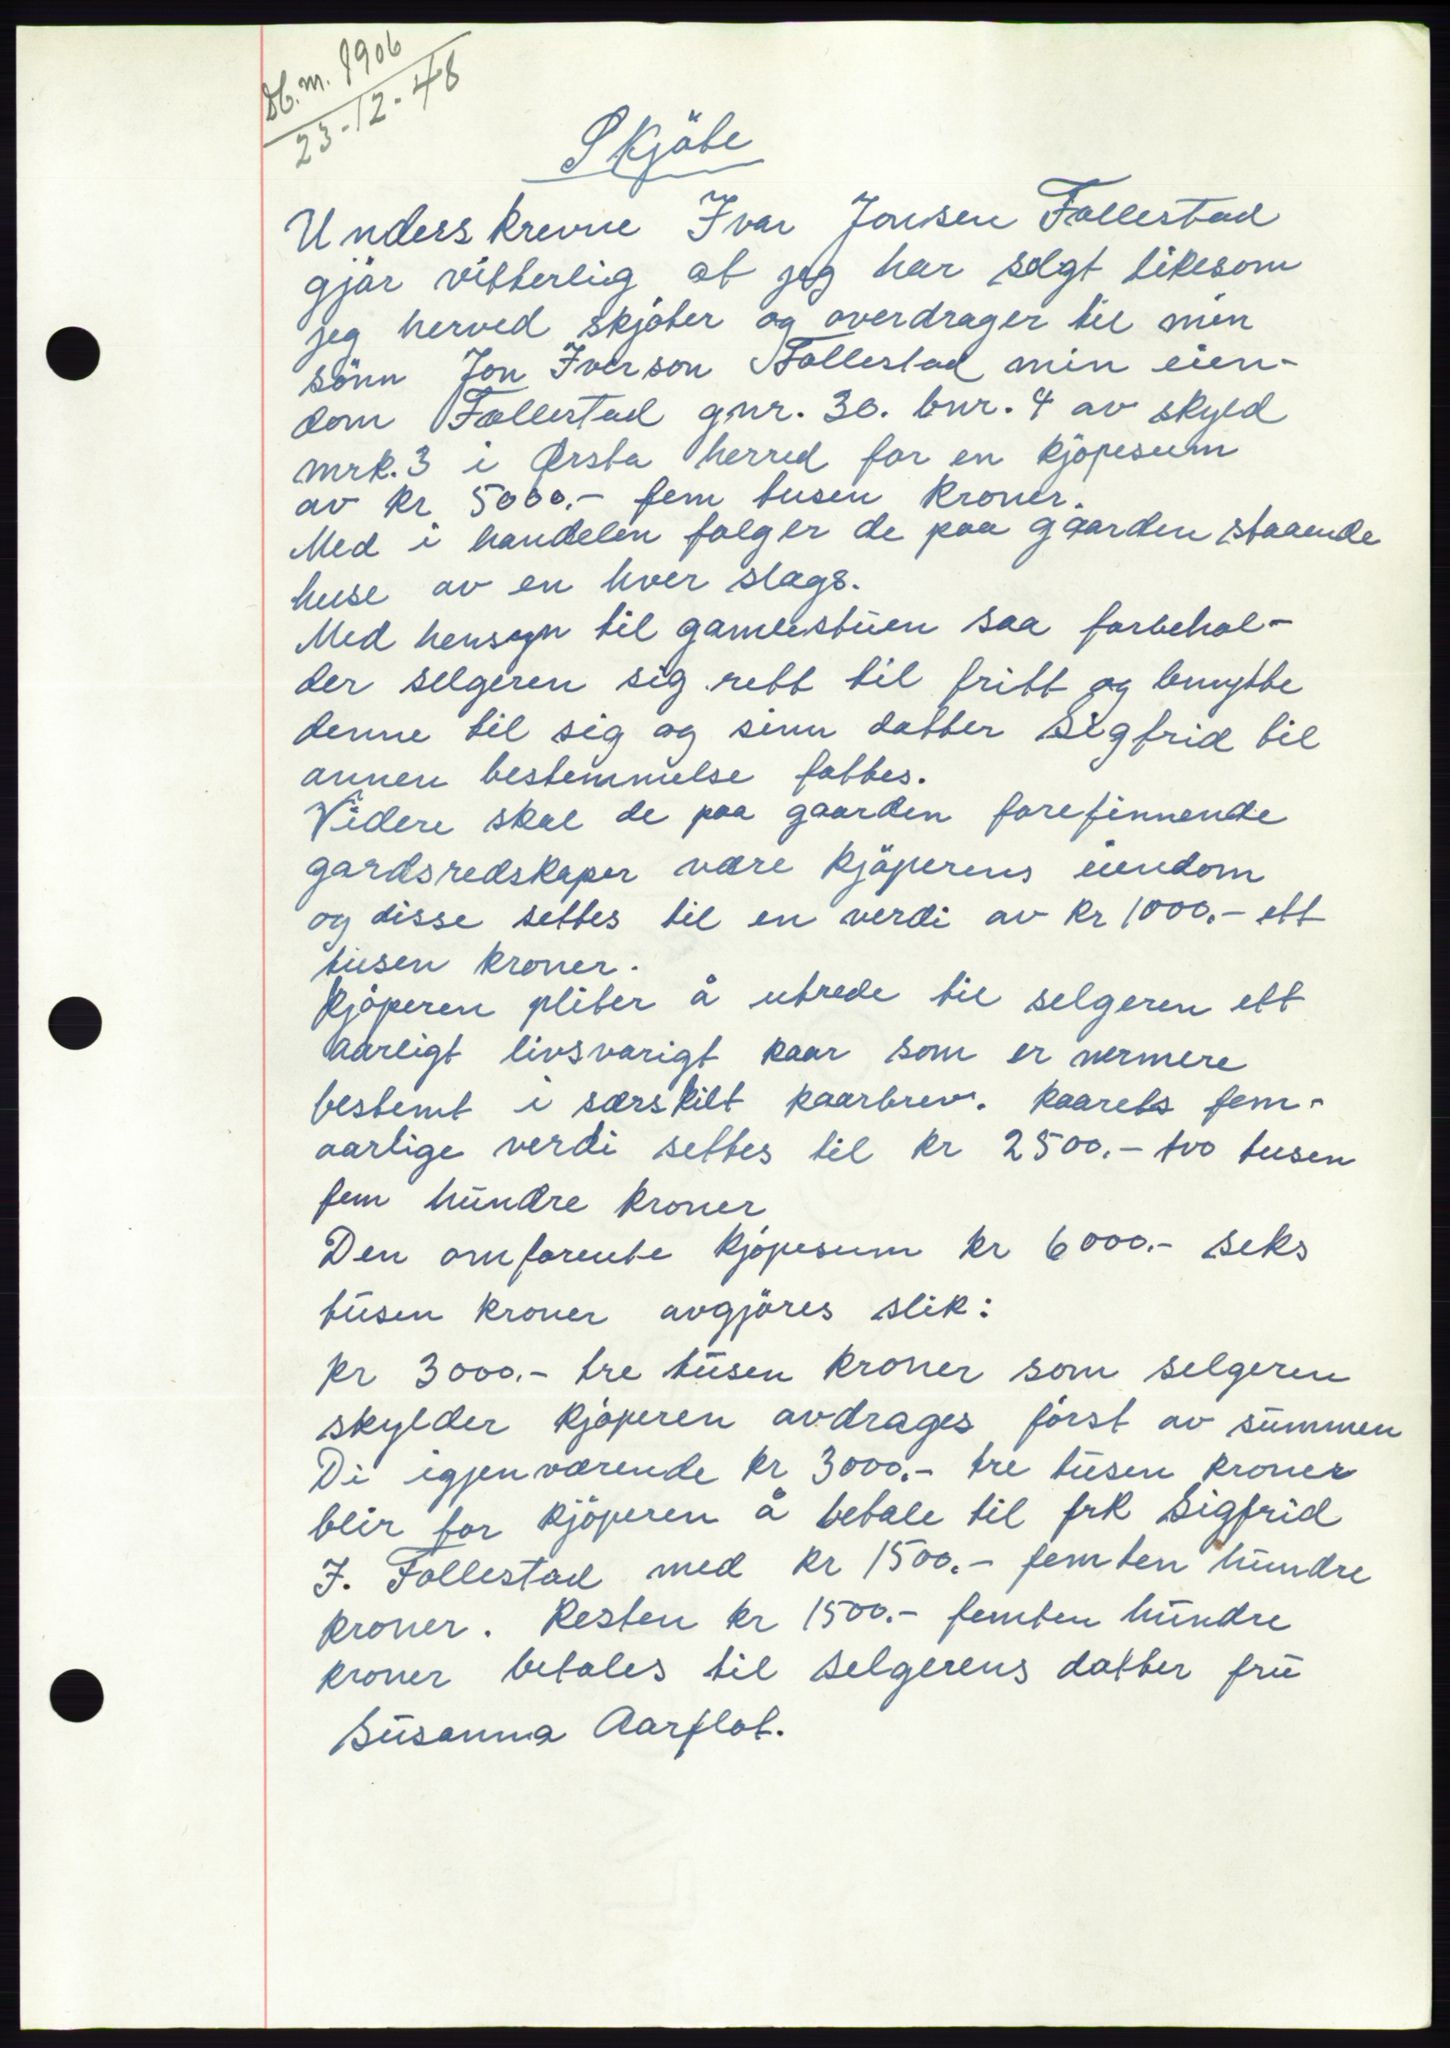 Db.m. 1906
23-12-48
Skjöte
Underskrevne Ivar Jonsen Follestad
gjör vitterlig at jeg har solgt likesom
jeg herved skjöter og overdrager til min
sönn Jon Iverson Follestad min eien-
dom Follestad g.nr. 30. bnr. 4 av skyld
mrk. 3 i Ørsta herred for en kjöpesum
av kr 5000.- fem tusen kroner.
Med i handelen fölger de paa gaarden staaende
huse av en hver slags.
Med hensyn til gamlestuen saa forbehol-
der selgeren sig rett til fritt og benytte
denne til sig og sinn datter Sigfrid til
annen bestemmelse fattes.
Videre skal de paa gaarden forefinnende
gardsredskaper være kjöperens eiendom
og disse settes til en verdi av kr 1000.- ett
tusen kroner.
Kjöperen pliter å utrede til selgeren ett
aarligt livsvarigt kaar som er nermere
bestemt i særskilt kaarbrev. Kaarets fem-
aarlige verdi settes til kr 2500.- tvo tusen
fem hundre kroner
Den omforente kjöpesum kr 6000.- seks
tusen kroner avgjöres slik:
kr 3000.- tre tusen kroner som selgeren
skylder kjöperen avdrages först av summen
Di igjenværende kr 3000.- tre tusen kroner
blir for kjöperen å betale til frk Sigfrid
I. Follestad med kr 1500.- femten hundre
kroner. Resten kr 1500.- femten hundre
kroner betales til selgerens datter fru
Susanna Aarflot.